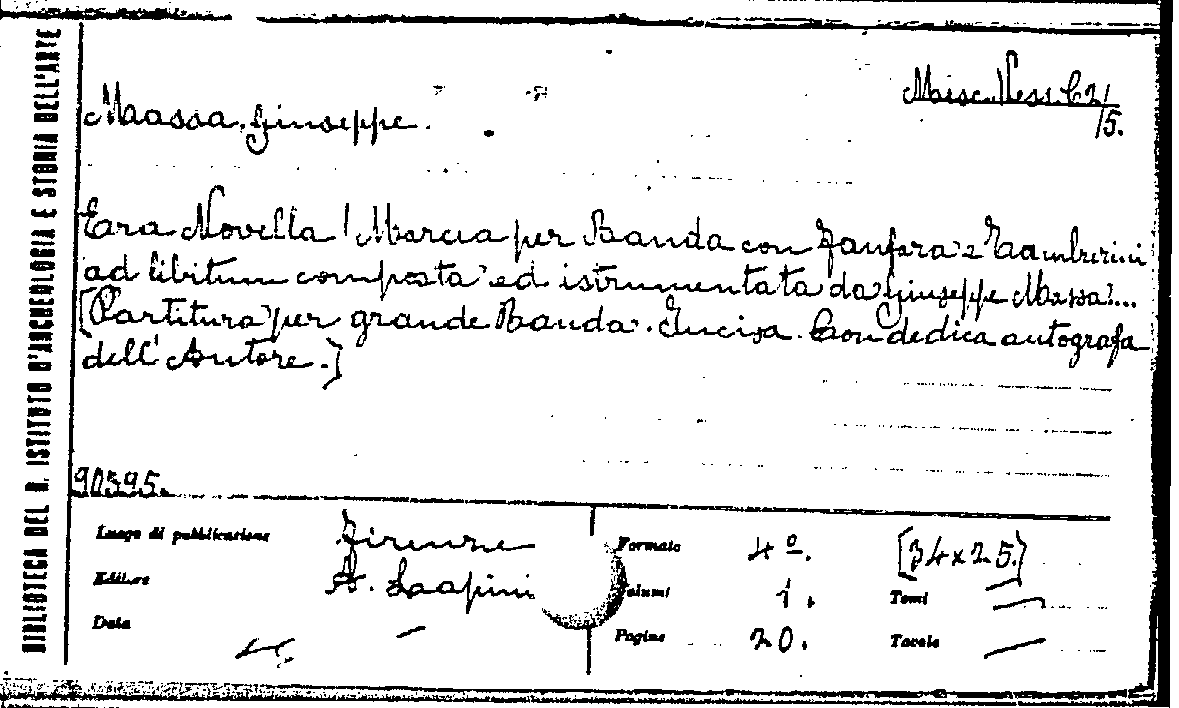 BIBLIOTECA DEL R. ISTITUTO D'ARCHEOLOGIA E STORIA DELL'ARTE
Misc. Vess. C2/
/5.
Massa, Giuseppe.
Era Novella! Marcia per Banda con Fanfara e Tamburini
ad libitum composta ed istrumentata da Giuseppe Massa...
[Partitura per grande Banda. Incisa. Con dedica autografa
dell'Autore.]
90395.
Luogo di pubblicazione Firenze Formato 4º. [34x25.]
Editore A. Lapini Volumi 1. Tomi —
Data — Pagine 20. Tavole —